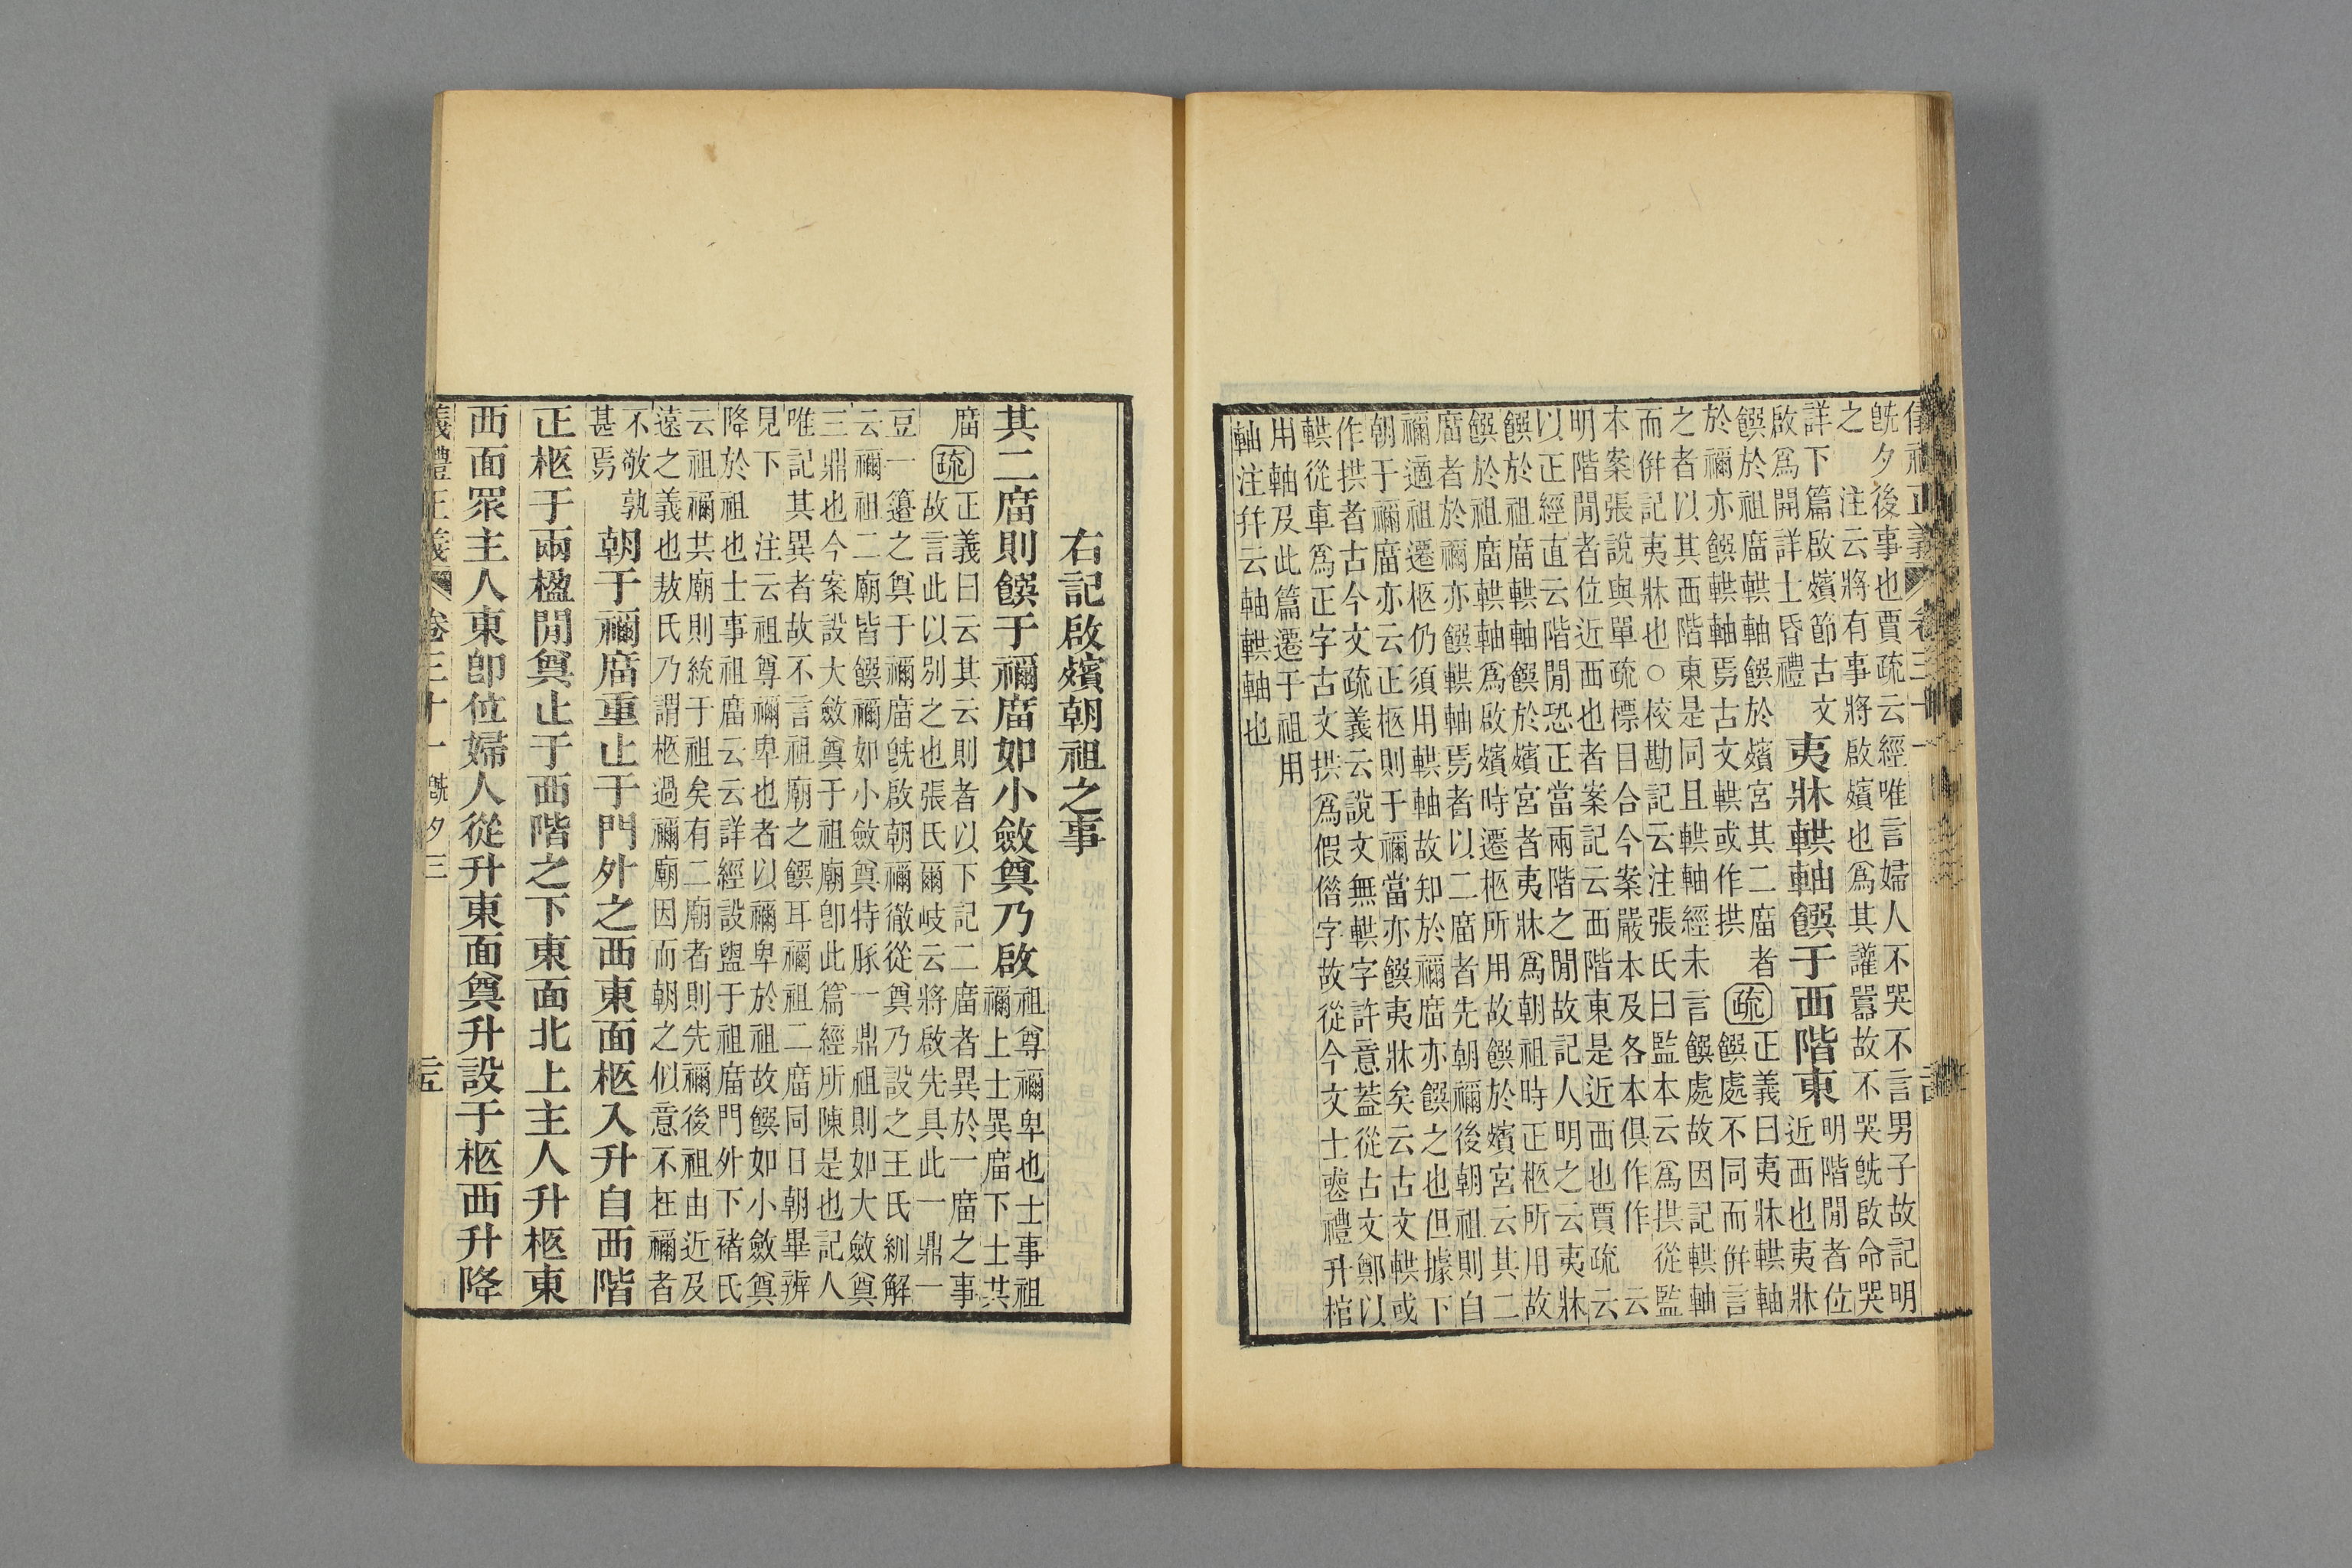 儀禮正義 卷三十一
旣夕後事也賈疏云經唯言婦人不哭不言男子故記明
之 注云將有事將啟殯也爲其讙嚻故不哭旣啟命哭
詳下篇啟殯節古文
啟爲開詳士昏禮
夷牀輁軸饌于西階東
明階閒者位
近西也夷牀
饌於祖庿輁軸饌於殯宮其二庿者
於禰亦饌輁軸焉古文輁或作拱
疏
正義曰夷牀輁軸
饌處不同而併言
之者以其西階東是同且輁軸經未言饌處故因記輁軸
而併記夷牀也○校勘記云注張氏曰監本云爲拱從監
本案張說與單疏標目合今案嚴本及各本俱作作 云
明階閒者位近西也者案記云西階東是近西也賈疏云
以正經直云階閒恐正當兩階之閒故記人明之云夷牀
饌於祖庿輁軸饌於殯宮者夷牀爲朝祖時正柩所用故
饌於祖庿輁軸爲啟殯時遷柩所用故饌於殯宮云其二
庿者於禰亦饌輁軸焉者以二庿者先朝禰後朝祖則自
禰適祖遷柩仍須用輁軸故知於禰庿亦饌之也但據下
朝于禰庿亦云正柩則于禰當亦饌夷牀矣云古文輁或
作拱者古今文疏義云說文無輁字許意葢從古文鄭以
輁從車爲正字古文拱爲假僣字故從今文士喪禮升棺
用軸及此篇遷于祖用
軸注幷云軸輁軸也
右記啟殯朝祖之事
其二庿則饌于禰庿如小斂奠乃啟
祖尊禰卑也士事祖
禰上士異庿下士共
庿
疏
正義曰云其云則者以下記二庿者異於一庿之事
故言此以別之也張氏爾岐云將啟先具此一鼎一
豆一籩之奠于禰庿旣啟朝禰徹從奠乃設之王氏紃解
云禰祖二廟皆饌禰如小斂奠特豚一鼎祖則如大斂奠
三鼎也今案設大斂奠于祖廟卽此篇經所陳是也記人
唯記其異者故不言祖廟之饌耳禰祖二庿同日朝畢辨
見下 注云祖尊禰卑也者以禰卑於祖故饌如小斂奠
降於祖也士事祖庿云云詳經設盥于祖庿門外下褚氏
云祖禰共廟則統于祖矣有二廟者則先禰後祖由近及
遠之義也敖氏乃謂柩過禰廟因而朝之似意不在禰者
不敬孰
甚焉
朝于禰庿重止于門外之西東面柩入升自西階
正柩于兩楹閒奠止于西階之下東面北上主人升柩東
西面眾主人東卽位婦人從升東面奠升設于柩西升降
義禮正義 卷三十一 旣夕三 二五